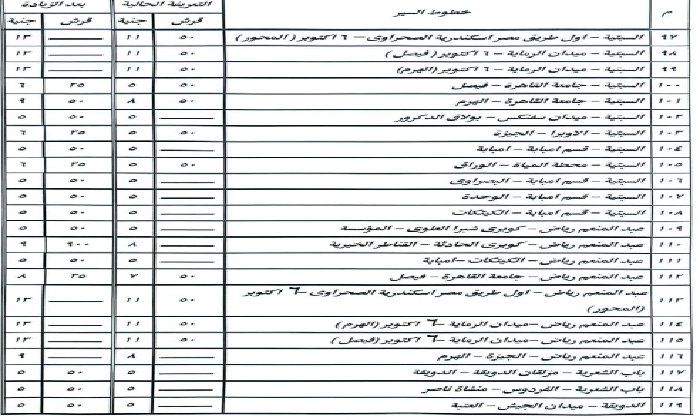 م خطوط السير التعريفة الحالية بعد الزيادة
قرش جنية قرش جنية
٩٧ السبتية – اول طريق مصر اسكندرية الصحراوى – ٦ اكتوبر (المحور) ٥٠ ١١ — ١٣
٩٨ السبتية – ميدان الرماية – ٦ اكتوبر (فيصل) ٥٠ ١١ — ١٣
٩٩ السبتية – ميدان الرماية – ٦ اكتوبر (الهرم) ٥٠ ١١ — ١٣
١٠٠ السبتية – جامعة القاهرة – فيصل ٥٠ ٥ ٢٥ ٦
١٠١ السبتية – جامعة القاهرة – الهرم ٥٠ ٨ ٥٠ ٩
١٠٢ السبتية – ميدان سفنكس – بولاق الدكرور — ٥ ٥٠ ٥
١٠٣ السبتية – الاوبرا – الجيزة ٥٠ ٥ ٢٥ ٦
١٠٤ السبتية – قسم امبابة – امبابة — ٥ ٥٠ ٥
١٠٥ السبتية – محطة المياة – الوراق ٥٠ ٥ ٢٥ ٦
١٠٦ السبتية – قسم امبابة – البصراوى — ٥ ٥٠ ٥
١٠٧ السبتية – قسم امبابة – الوحدة — ٥ ٥٠ ٥
١٠٨ السبتية – قسم امبابة – الكيتكات — ٥ ٥٠ ٥
١٠٩ عبد المنعم رياض – كوبرى شبرا العلوى – المؤسسة — ٥ ٥٠ ٥
١١٠ عبد المنعم رياض – كوبرى الحادثة – القناطر الخيرية — ٨ ٩٠٠ ٩
١١١ عبد المنعم رياض – الكيتكات – امبابة — ٥ ٥٠ ٥
١١٢ عبد المنعم رياض – جامعة القاهرة – فيصل ٥٠ ٧ ٢٥ ٨
١١٣ عبد المنعم رياض – اول طريق مصر اسكندرية الصحراوى – ٦ اكتوبر ٥٠ ١١ — ١٣
(المحور)
١١٤ عبد المنعم رياض – ميدان الرماية – ٦ اكتوبر (الهرم) ٥٠ ١١ — ١٣
١١٥ عبد المنعم رياض – ميدان الرماية – ٦ اكتوبر (فيصل) ٥٠ ١١ — ١٣
١١٦ عبد المنعم رياض – الجيزة – الهرم — ٨ — ٩
١١٧ باب الشعرية – مزلقان الدويقة – الدويقة — ٥ ٥٠ ٥
١١٨ باب الشعرية – الفردوس – منشاة ناصر — ٥ ٥٠ ٥
١١٩ الدويقة – ميدان الجيش – العتبة — ٥ ٥٠ ٥